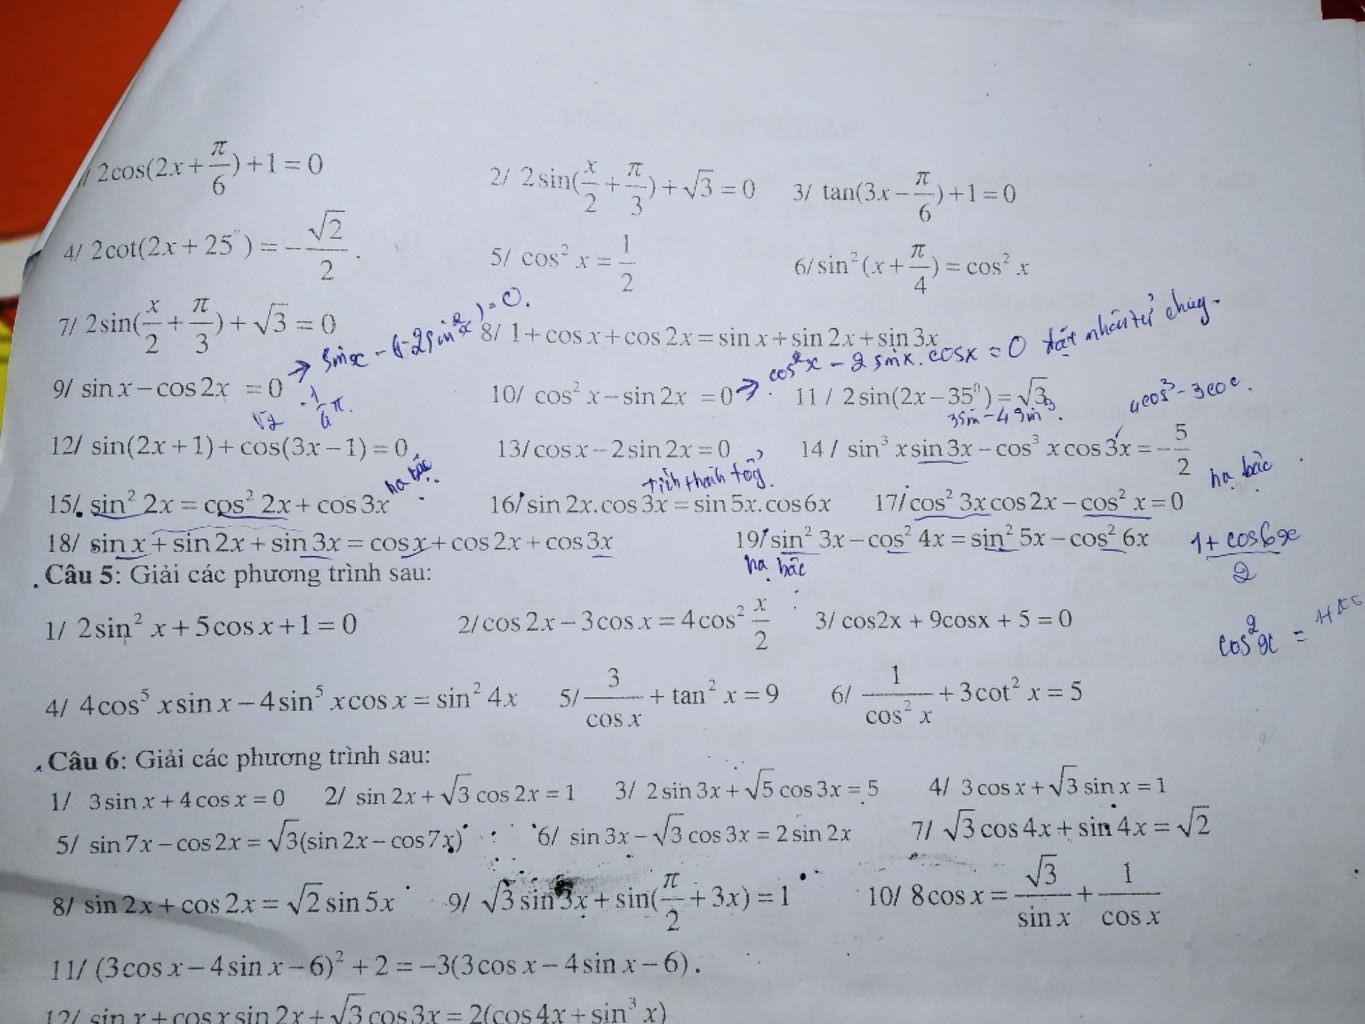 / 2cos(2x + π/6) + 1 = 0 2/ 2sin(x/2 + π/3) + √3 = 0 3/ tan(3x − π/6) + 1 = 0
4/ 2cot(2x + 25°) = −√2/2 . 5/ cos² x = 1/2 6/ sin²(x + π/4) = cos² x
7/ 2sin(x/2 + π/3) + √3 = 0 8/ 1 + cos x + cos 2x = sin x + sin 2x + sin 3x
→ sinx − (1−2sin²x) = 0.
→ cos²x − 2 sinx . cosx = 0 đặt nhân tử chung.
9/ sin x − cos 2x = 0 10/ cos² x − sin 2x = 0 11 / 2sin(2x − 35°) = √3
3sin − 4sin³ 4cos³ − 3cos.
12/ sin(2x + 1) + cos(3x − 1) = 0 13/ cos x − 2 sin 2x = 0 14 / sin³ x sin 3x − cos³ x cos 3x = −5/2
hạ bậc tích thành tổng hạ bậc
15/ sin² 2x = cos² 2x + cos 3x 16/ sin 2x.cos 3x = sin 5x.cos 6x 17/ cos² 3x cos 2x − cos² x = 0
18/ sin x + sin 2x + sin 3x = cos x + cos 2x + cos 3x 19/ sin² 3x − cos² 4x = sin² 5x − cos² 6x
hạ bậc
1 + cos6x / 2
Câu 5: Giải các phương trình sau:
1/ 2sin² x + 5cos x + 1 = 0 2/ cos 2x − 3cos x = 4cos² x/2 3/ cos2x + 9cosx + 5 = 0
cos²x =
4/ 4cos⁵ x sin x − 4sin⁵ x cos x = sin² 4x 5/ 3/cos x + tan² x = 9 6/ 1/cos² x + 3cot² x = 5
Câu 6: Giải các phương trình sau:
1/ 3sin x + 4cos x = 0 2/ sin 2x + √3 cos 2x = 1 3/ 2sin 3x + √5 cos 3x = 5 4/ 3cos x + √3 sin x = 1
5/ sin 7x − cos 2x = √3(sin 2x − cos 7x) 6/ sin 3x − √3 cos 3x = 2 sin 2x 7/ √3 cos 4x + sin 4x = √2
8/ sin 2x + cos 2x = √2 sin 5x 9/ √3 sin 3x + sin(π/2 + 3x) = 1 10/ 8cos x = √3/sin x + 1/cos x
11/ (3cos x − 4sin x − 6)² + 2 = −3(3cos x − 4sin x − 6) .
12/ sin x + cos x sin 2x + √3 cos 3x = 2(cos 4x + sin³ x)